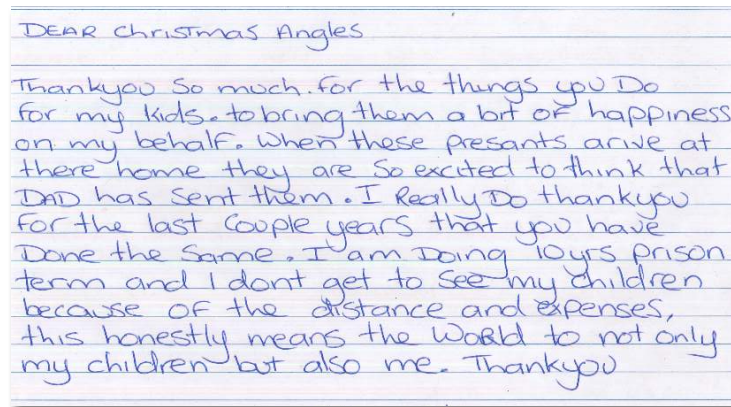 DEAR Christmas Angles
Thankyou so much. for the things you Do
for my kids. to bring them a bit of happiness
on my behalf. When these presants arive at
there home they are so excited to think that
DAD has sent them. I Really Do thankyou
for the last couple years that you have
Done the same. I am Doing 10yrs prison
term and I dont get to see my children
because of the distance and expenses,
this honestly means the World to not only
my children but also me. Thankyou